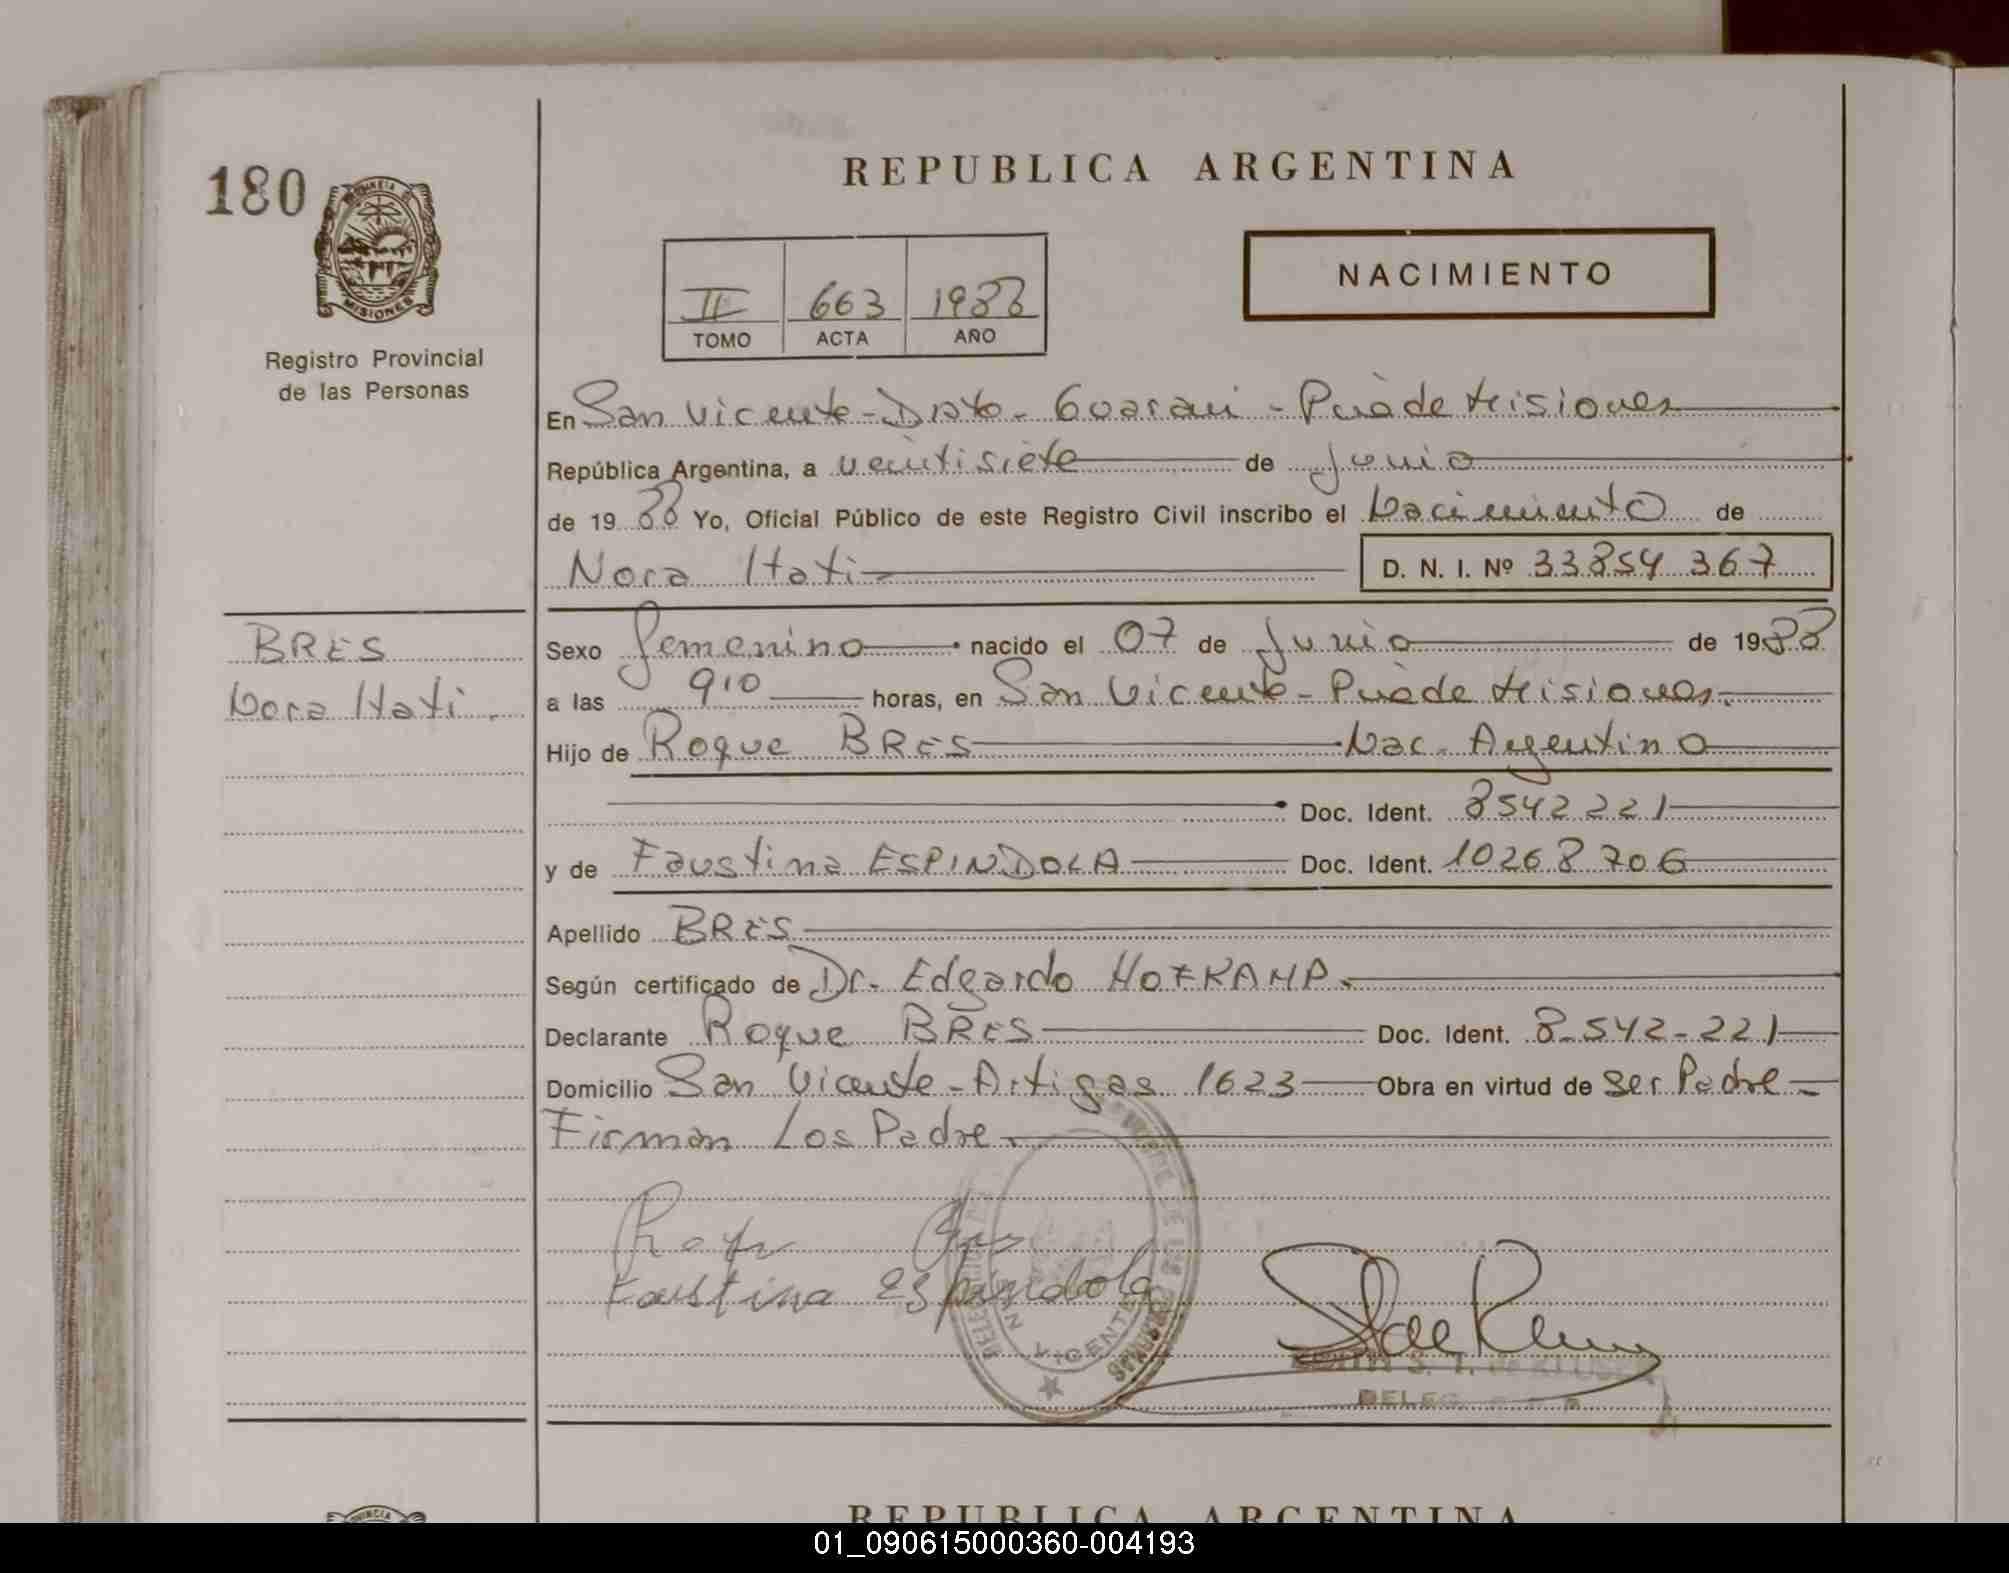 REPUBLICA ARGENTINA
180
PROVINCIA DE
MISIONES
Registro Provincial
de las Personas
II 663 1988
TOMO ACTA AÑO
NACIMIENTO
En San Vicente - Dpto. Guarani - Pcia de Misiones
República Argentina, a veintisiete de Junio
de 19 88 Yo, Oficial Público de este Registro Civil inscribo el Nacimiento de
Nora Itati
D. N. I. Nº 33854 367
BRES
Nora Itati.
Sexo femenino nacido el 07 de Junio de 1988
a las 9,10 horas, en San Vicente - Pcia de Misiones.
Hijo de Roque BRES Nac. Argentino
Doc. Ident. 8542221
y de Faustina ESPINDOLA Doc. Ident. 10268706
Apellido BRES
Según certificado de Dr. Edgardo HOFKAMP.
Declarante Roque BRES Doc. Ident. 8-542-221
Domicilio San Vicente - Artigas 1623 Obra en virtud de ser Padre -
Firman Los Padre.
Faustina Espindola
VICENTE
DE LAS PERSONAS
S. T. de
REPUBLICA ARGENTINA
01_090615000360-004193